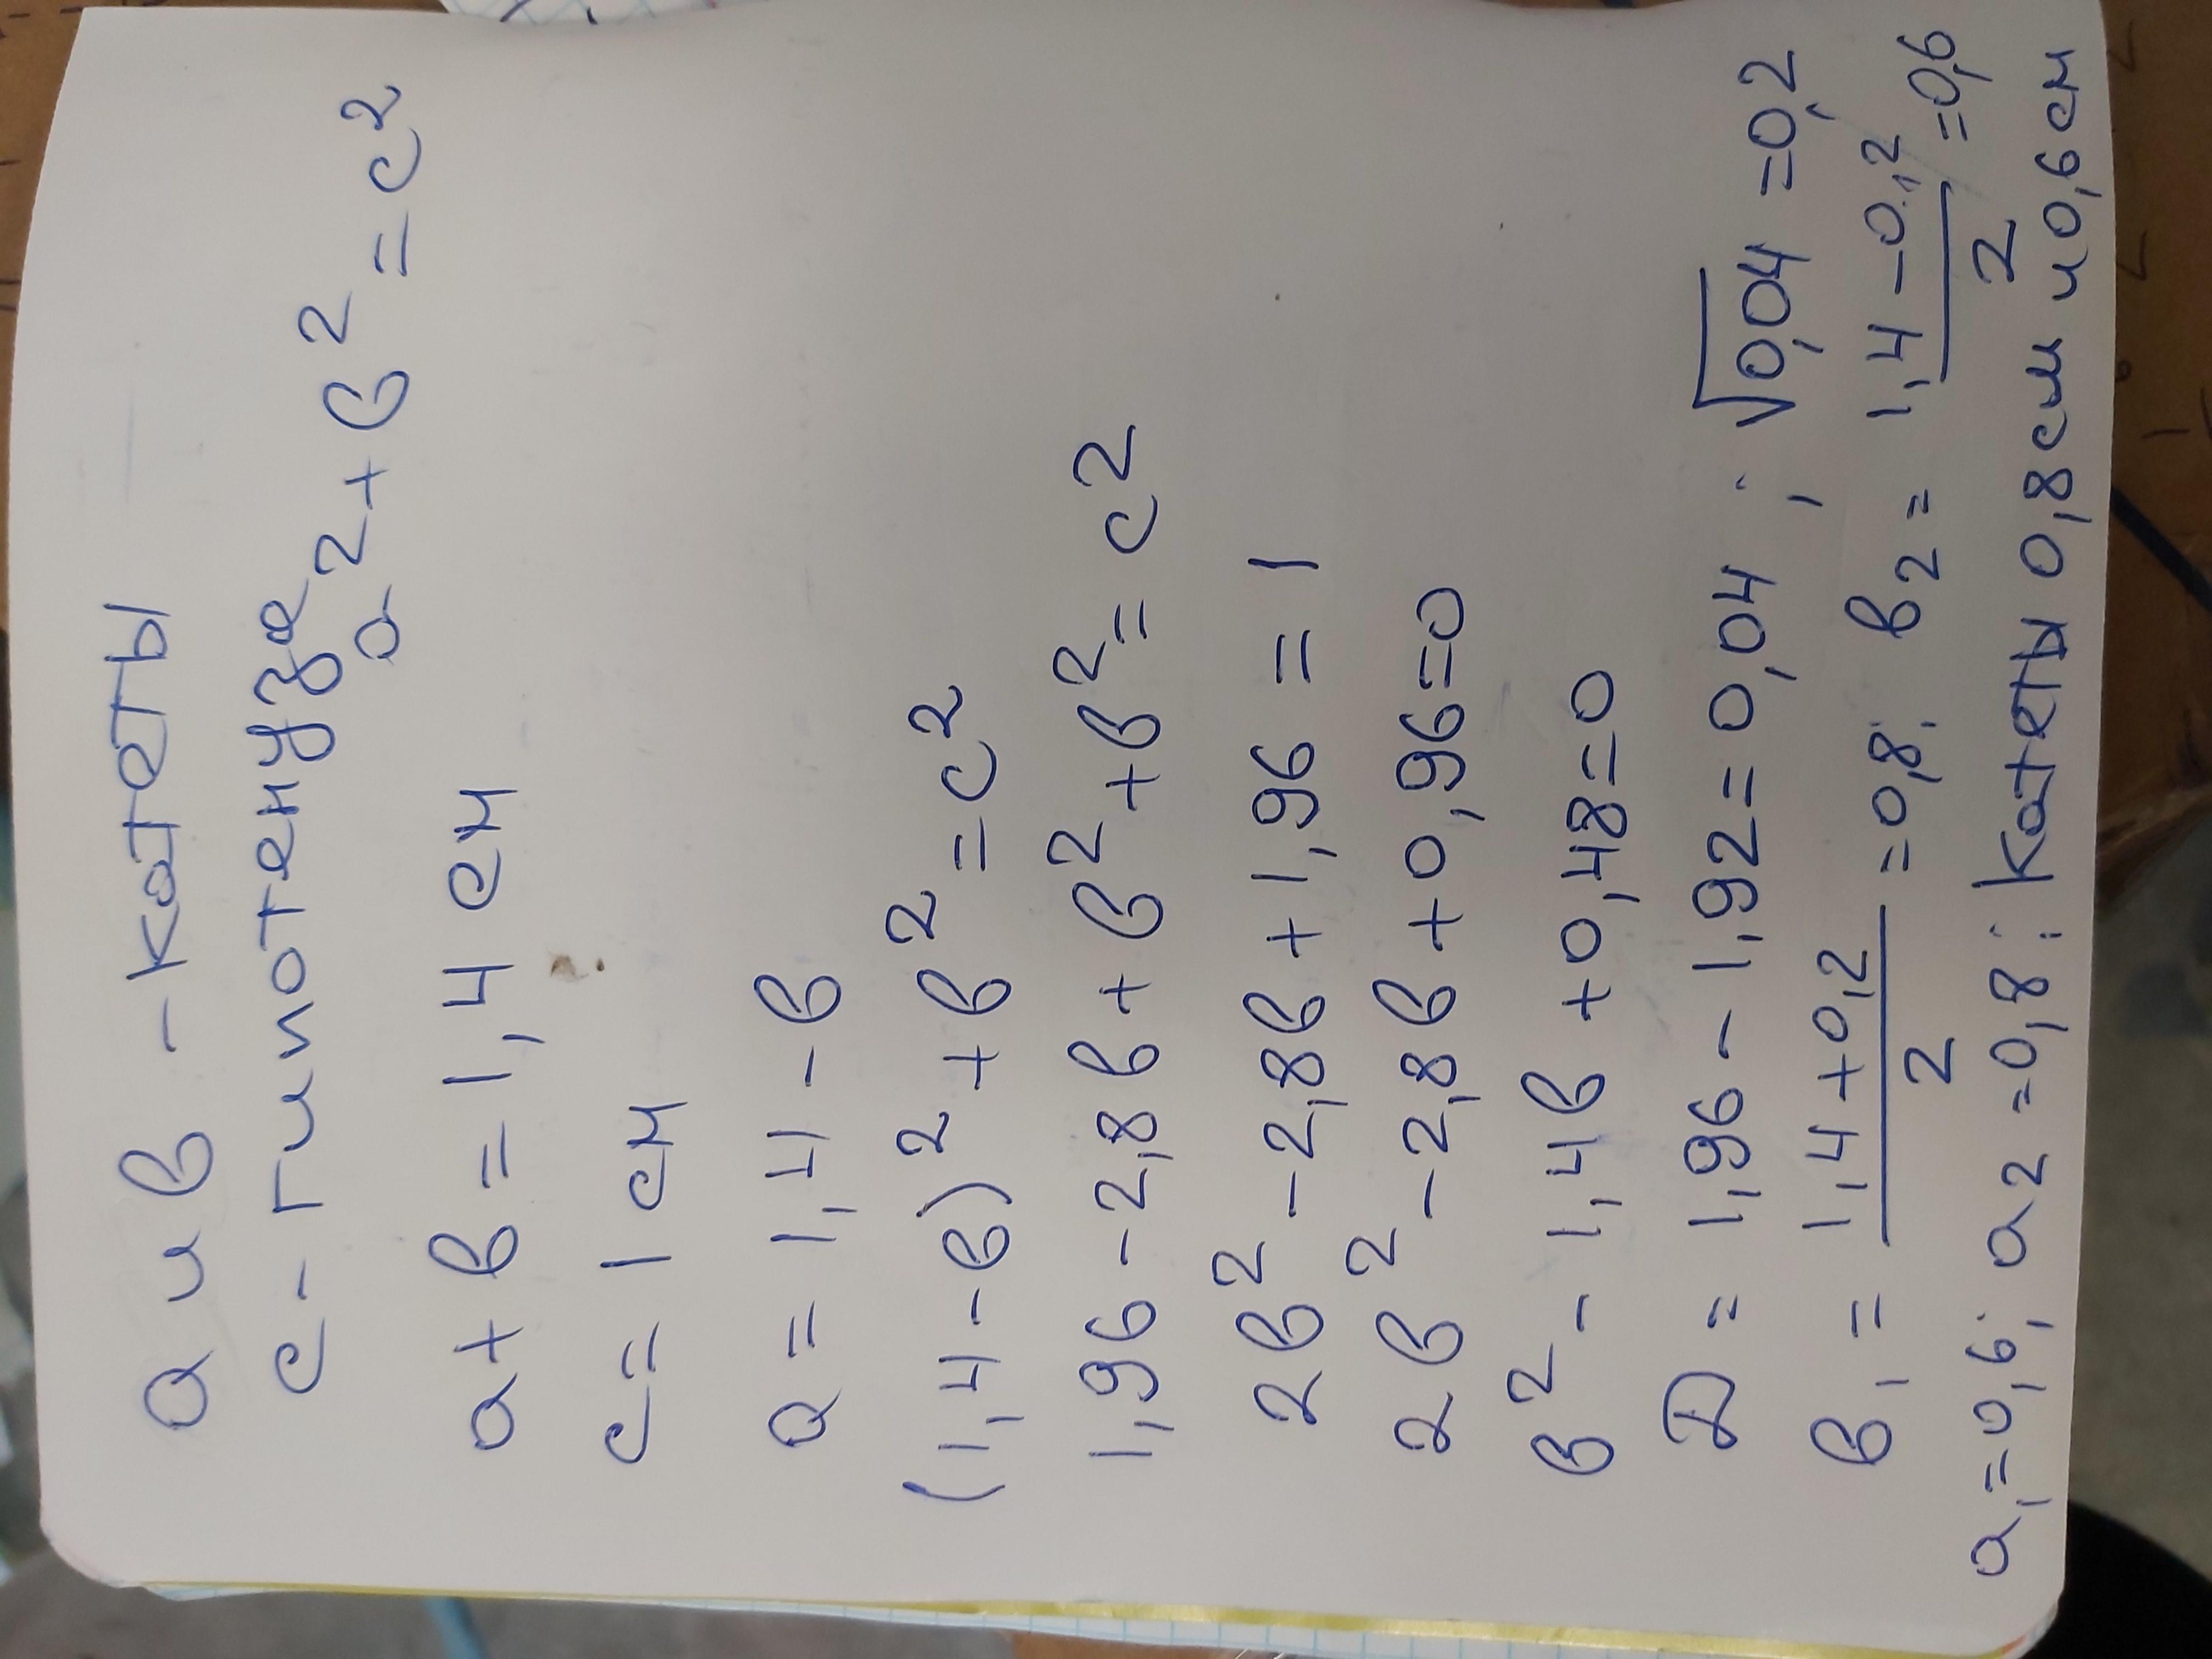 а и в - катеты
с - гипотенуза
а² + в² = с²
а + в = 1,4 см
с = 1 см
а = 1,4 - в
(1,4 - в)² + в² = с²
1,96 - 2,8в + в² + в² = с²
2в² - 2,8в + 1,96 = 1
2в² - 2,8в + 0,96 = 0
в² - 1,4в + 0,48 = 0
D = 1,96 - 1,92 = 0,04 ; √0,04 = 0,2
в₁ = (1,4 + 0,2)/2 = 0,8; в₂ = (1,4 - 0,2)/2 = 0,6
а₁ = 0,6; а₂ = 0,8: Катеты 0,8см и 0,6см